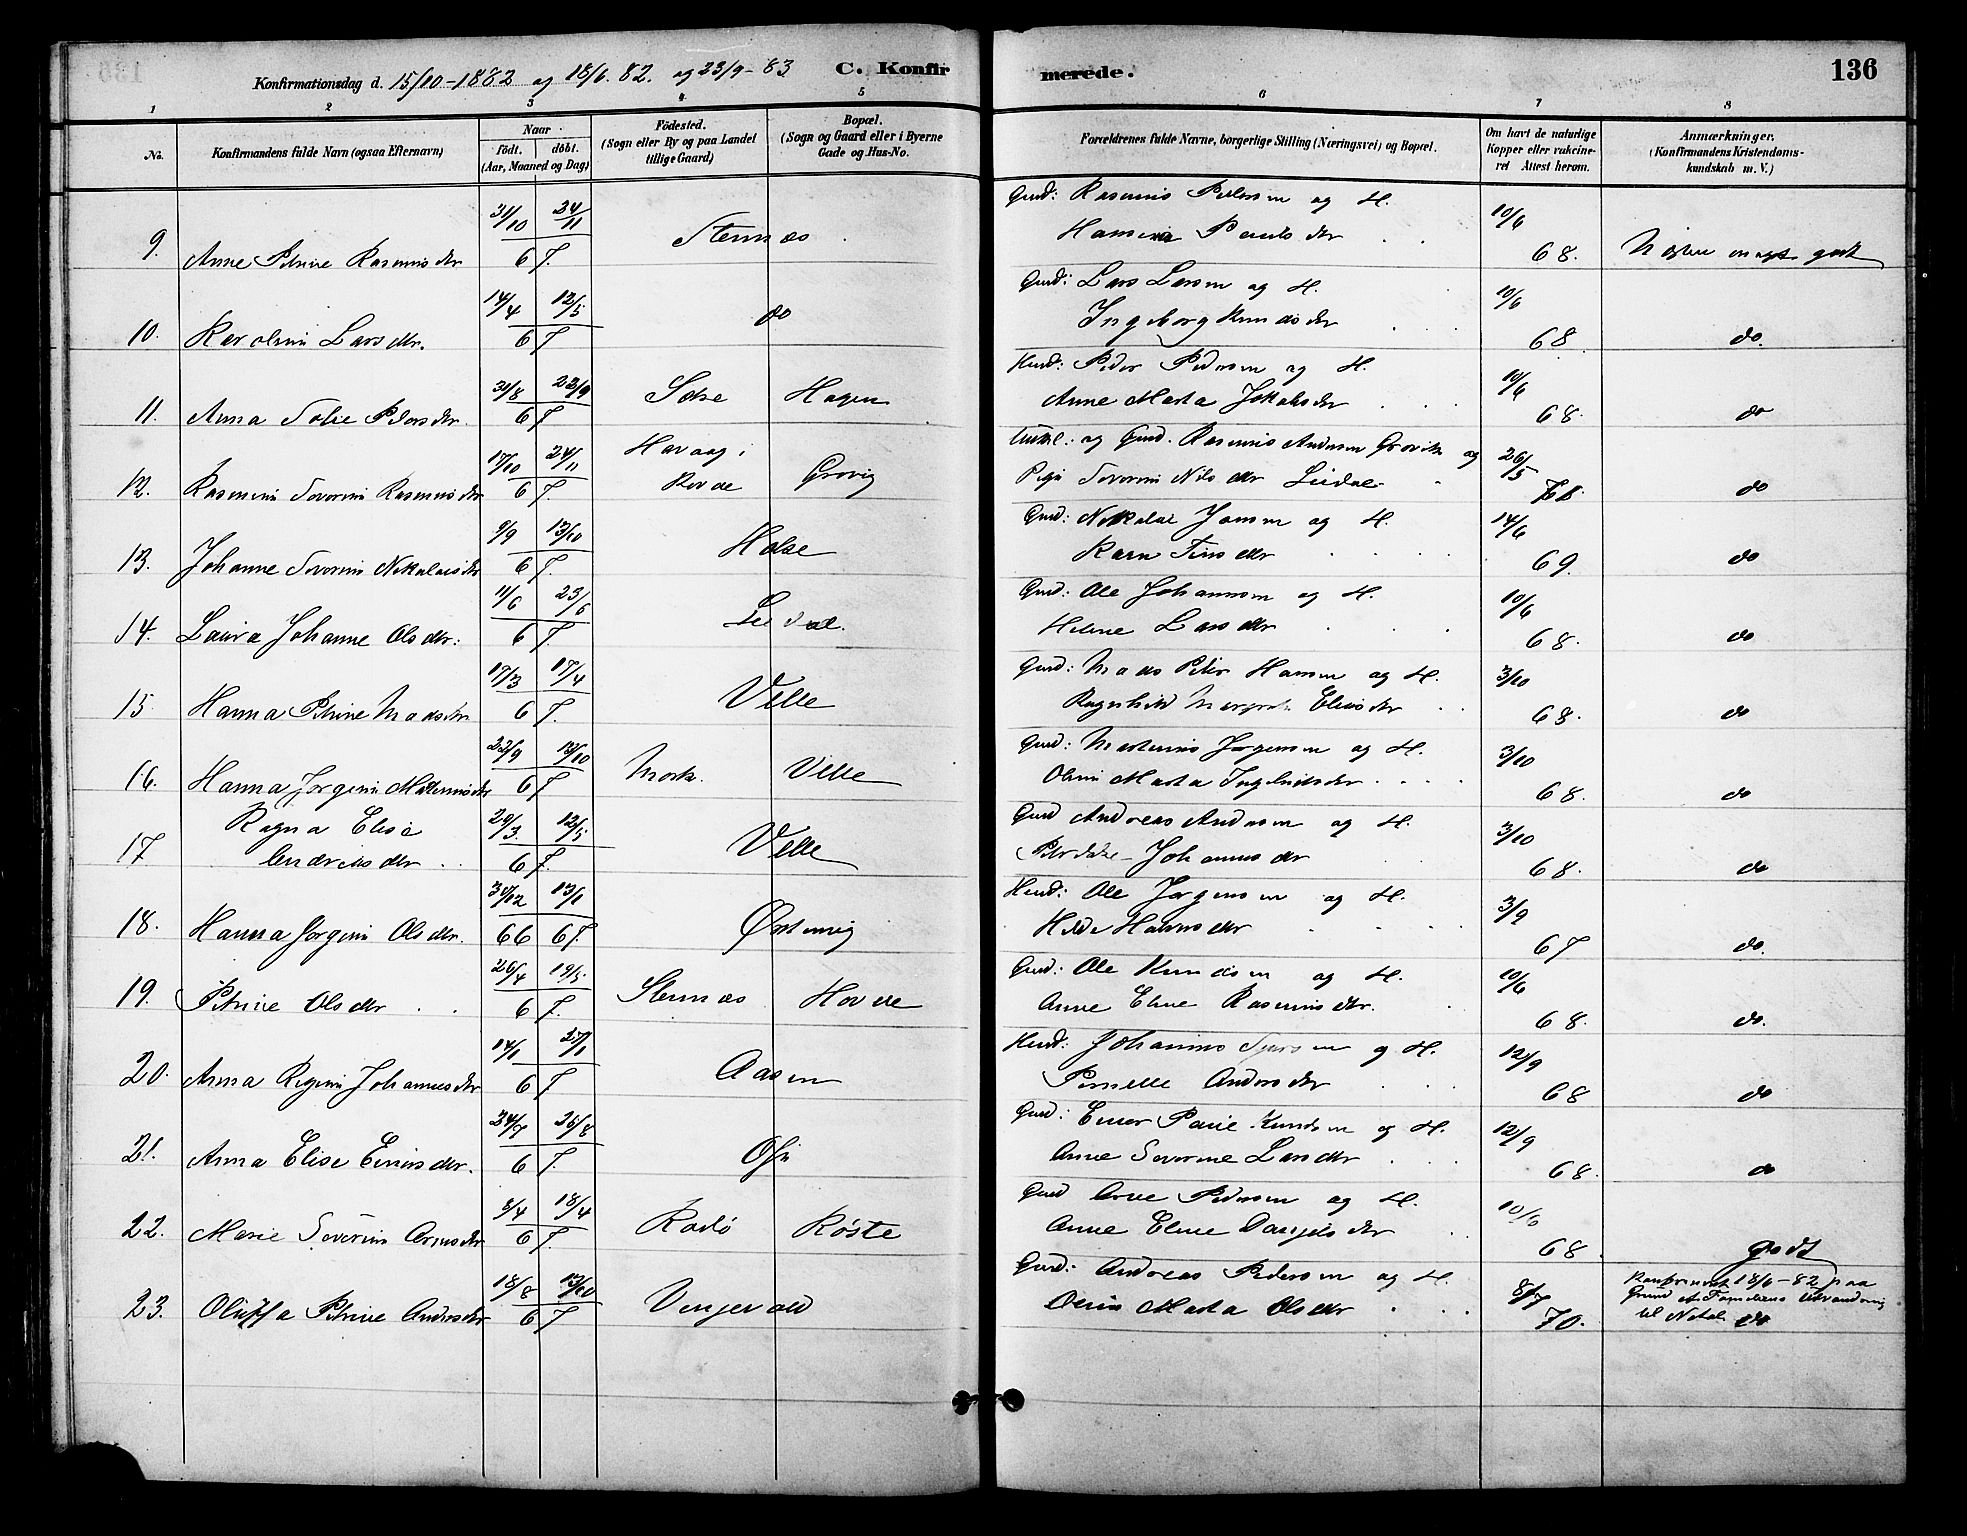 Konfirmationsdag d. 15/10-1882 og 18/6. 82. og 23/9-83 C. Konfirmerede. 136
1 2 3 4 5 6 7 8
No. Konfirmandens fulde Navn (ogsaa Efternavn) Naar født. døbt. (Aar, Maaned og Dag) Födested. (Sogn eller By og paa Landet tillige Gaard) Bopæl. (Sogn og Gaard eller i Byerne Gade og Hus-No. Forældrenes fulde Navne, borgerlige Stilling (Næringsvei) og Bopæl. Om havt de naturlige Kopper eller vakcineret Attest herom. Anmærkninger. (Konfirmandens Kristendomskundskab m. V.)
9. Anne Petrine Rasmusdtr 31/10 24/11 67. Stennes Gmd: Rasmus Pedersen og H. 10/6 68.
10. Karoline Larsdtr. 14/4 12/5 67 do Gmd: Lars Larsen og H. Ingeborg Knudsdtr 10/6 68. do.
11. Anna Sofie Pedersdtr. 30/8 22/9 67 Hagen Peder Pedersen og H. Anne Marta Jakobsdtr 10/6 68. do
12. Rasmine Severine Rasmusdtr 17/10 24/11 67. Havaag i Rovde Grovig og Gmd. Rasmus Andersen Grovik og Pige Severine Nilsdtr Lidal 26/5 do
13. Johanne Severine Nikolaisdtr 9/9 13/10 67. Gmd: Nikolai Jonsen og H. Karn Finsdtr 14/6 69. do
14. Laura Johanne Olsdtr. 11/6 23/6 67. Lidal. Gmd: Ole Johannsen og H. Helene Larsdtr 10/6 68. do
15. Hanna Petrine Madsdtr 17/3 17/4 67. Velle Gmd: Mads Peter Hansen og H. Ragnhild Margrete Eliasdtr 3/10 68. do
16. Hanna Jørgine Martinusdtr 22/9 13/10 67 Mork. Velle Gmd: Martinus Jørgensen og H. Oline Marta Ingebrigtsdtr 3/10 68. do
17 Ragna Elise Andreasdtr 29/3 12/5 67. Velle Gmd Andreas Andersen og H. Johannesdtr 3/10 68. do
18. Hanna Jørgine Olsdtr. 30/12 13/1 66 67. Ørstenvig Ole Jørgensen og H. Hansdtr 3/9 67 do.
19. Petrine Olsdtr 26/4 19/5. 67. Stennes Hovde Gmd: Ole Knudsen og H. Anne Eline Rasmusdtr. 10/6 68. do.
20. Anna Regine Johannesdtr 14/1 27/1 67 Aasen Johannes og H. Pernelle Andersdtr 12/9 68 do
21. Anna Elise Einersdtr. 24/7 26/8 67. Gmd: Einer Paul Knudsen og H. Anne Severine Larsdtr 12/9 68. do
22. Marie Severine Arnesdtr 5/4 18/4 67. Rødø Røste Gmd Arne Pedersen og H. Anne Eline Danielsdtr 10/6 68. godt
23. Oluffa Petrine Andersdtr 18/8 13/10 67 Gmd. Andreas Pedersen og H. Oline Marta Olsdtr 8/7 70. Konfirmeret 18/6-82 paa Grund af Familiens Udvandring til Natal do